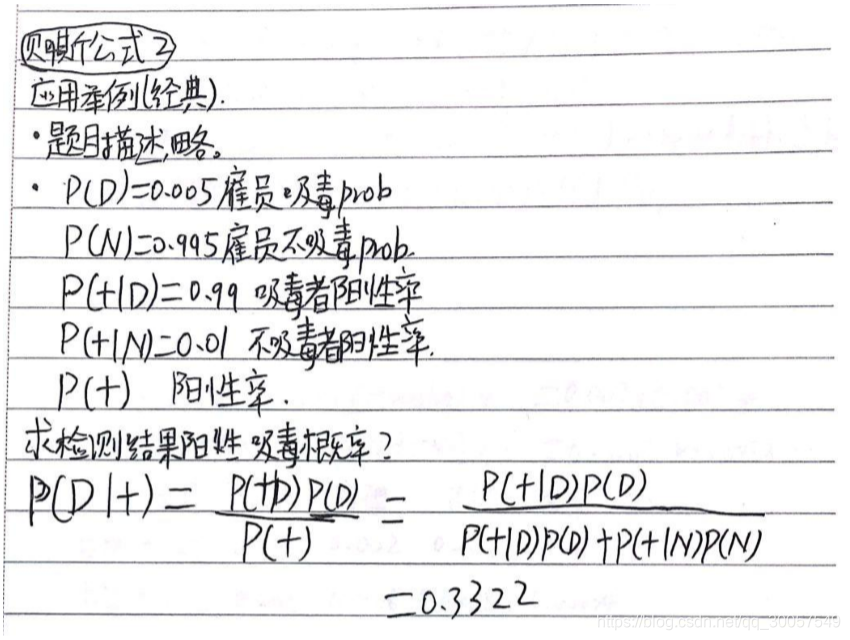 贝叶斯公式2
应用举例(经典).
·题目描述,略。
· P(D)=0.005雇员吸毒prob
P(N)=0.995雇员不吸毒prob.
P(+|D)=0.99 吸毒者阳性率
P(+|N)=0.01 不吸毒者阳性率.
P(+) 阳性率.
求检测结果阳性 吸毒概率?
P(D|+) = P(+|D)P(D) / P(+) = P(+|D)P(D) / P(+|D)P(D)+P(+|N)P(N)
=0.3322
https://blog.csdn.net/qq_30057549